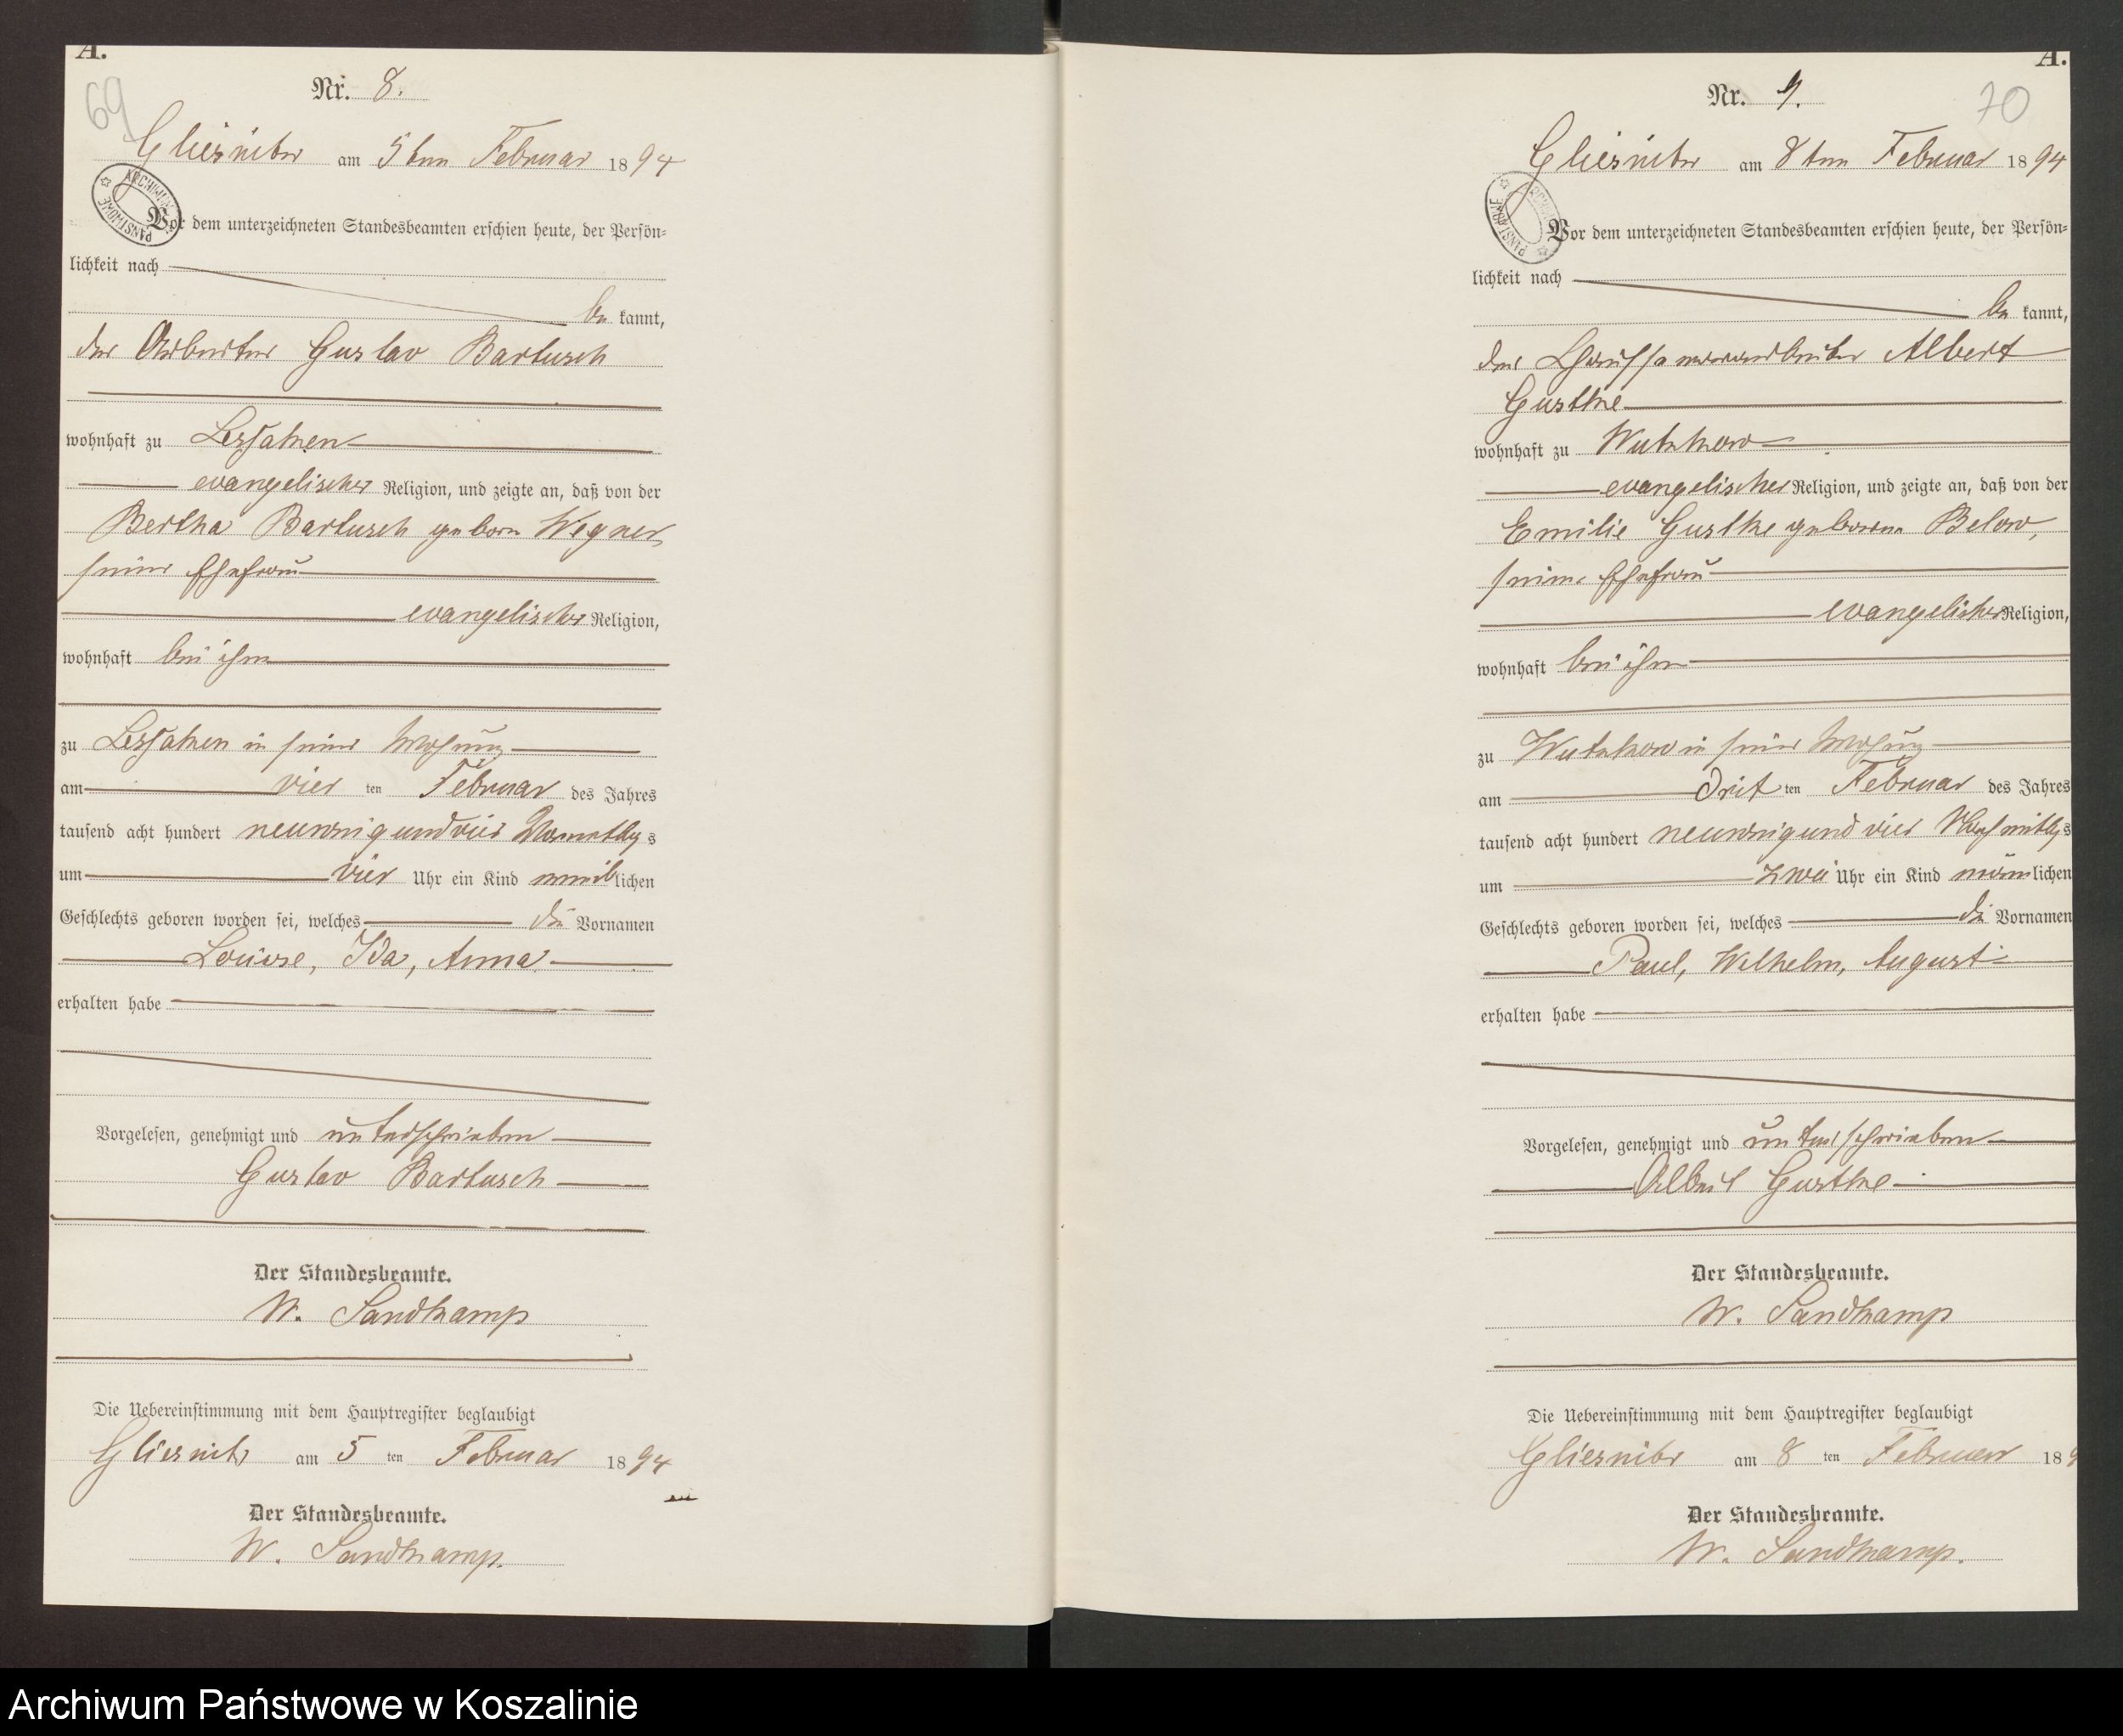 A.
69
Nr. 8.
Gliesnitz am 5ten Februar 1894
ARCHIWUM PAŃSTWOWE
Vor dem unterzeichneten Standesbeamten erschien heute, der Persön-
lichkeit nach
be kannt,
der Arbeiter Gustav Bartusch
wohnhaft zu Lessaken
evangelischer Religion, und zeigte an, daß von der
Bertha Bartusch geborn Wegner,
seiner Ehefrau
evangelischer Religion,
wohnhaft bei ihm
zu Lessaken in seiner Wohnung
am vier ten Februar des Jahres
tausend acht hundert neunzig und vier Vormittags
um vier Uhr ein Kind weiblichen
Geschlechts geboren worden sei, welches die Vornamen
Louise, Ida, Anna
erhalten habe
Vorgelesen, genehmigt und unterschrieben
Gustav Bartusch
Der Standesbeamte.
W. Sandkamp
Die Uebereinstimmung mit dem Hauptregister beglaubigt
Gliesnitz am 5 ten Februar 1894
Der Standesbeamte.
W. Sandkamp.
A.
70
Nr. 9.
Gliesnitz am 8ten Februar 1894
ARCHIWUM PAŃSTWOWE
Vor dem unterzeichneten Standesbeamten erschien heute, der Persön-
lichkeit nach
be kannt,
der Albert
Gustke
wohnhaft zu Wutzkow
evangelischer Religion, und zeigte an, daß von der
Emilie Gustke geborene Below,
seiner Ehefrau
evangelischer Religion,
wohnhaft bei ihm
zu Wutzkow in seiner Wohnung
am drit ten Februar des Jahres
tausend acht hundert neunzig und vier Nachmittags
um zwei Uhr ein Kind männlichen
Geschlechts geboren worden sei, welches die Vornamen
Paul, Wilhelm, August
erhalten habe
Vorgelesen, genehmigt und unterschrieben
Albert Gustke
Der Standesbeamte.
W. Sandkamp
Die Uebereinstimmung mit dem Hauptregister beglaubigt
Gliesnitz am 8 ten Februar 189
Der Standesbeamte.
W. Sandkamp.
Archiwum Państwowe w Koszalinie